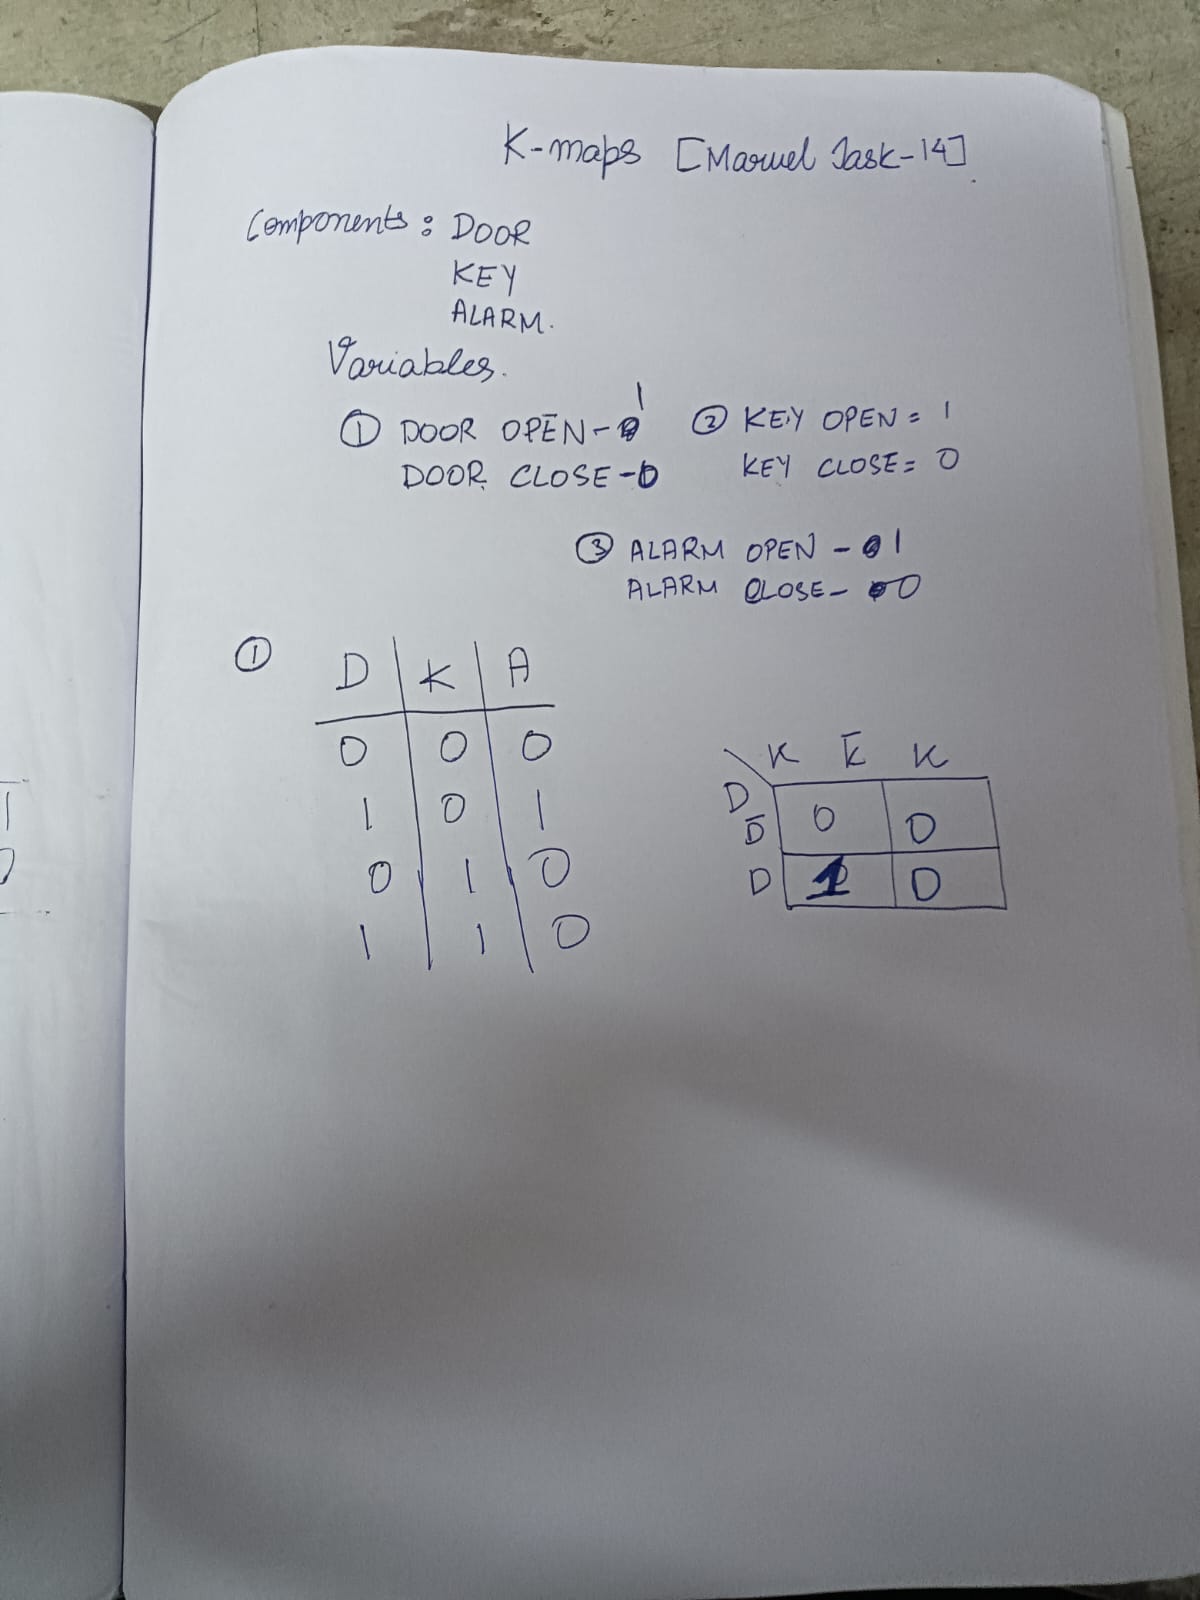 K-maps [Marvel Task-14]
Components: DOOR
KEY
ALARM.
Variables.
① DOOR OPEN - 1
DOOR CLOSE - 0
② KEY OPEN = 1
KEY CLOSE = 0
③ ALARM OPEN - 1
ALARM CLOSE - 0
①
D K A
0 0 0
1 0 1
0 1 0
1 1 0
K K̅ K
D
D̅ 0 0
D 1 0
1
0